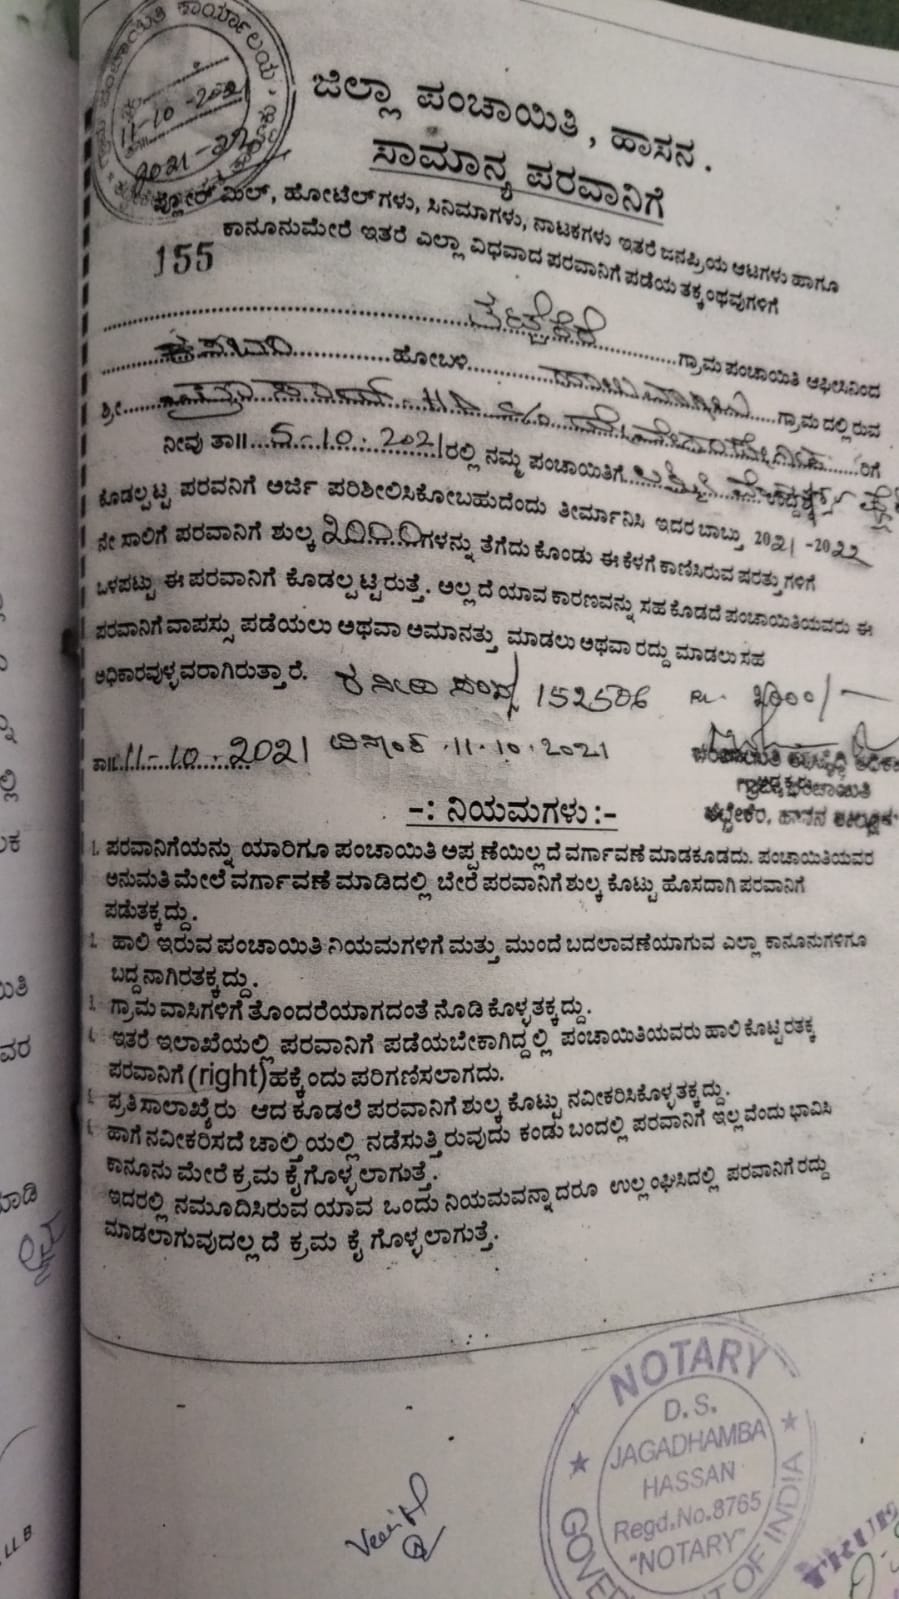 ಪಂಚಾಯಿತಿ ಕಾರ್ಯಾಲಯ
11-10-2021
2021-22
ಜಿಲ್ಲಾ ಪಂಚಾಯಿತಿ, ಹಾಸನ.
ಸಾಮಾನ್ಯ ಪರವಾನಿಗೆ
ಫ್ಲೋರ್ ಮಿಲ್, ಹೋಟೆಲ್‌ಗಳು, ಸಿನಿಮಾಗಳು, ನಾಟಕಗಳು ಇತರೆ ಜನಪ್ರಿಯ ಆಟಗಳು ಹಾಗೂ
ಕಾನೂನುಮೇರೆ ಇತರೆ ಎಲ್ಲಾ ವಿಧವಾದ ಪರವಾನಿಗೆ ಪಡೆಯ ತಕ್ಕಂಥವುಗಳಿಗೆ
155
ಗ್ರಾಮ ಪಂಚಾಯಿತಿ ಆಫೀಸಿನಿಂದ
ಹೋಬಳಿ ಗ್ರಾಮದಲ್ಲಿರುವ
ಶ್ರೀ ರಿಗೆ
ನೀವು ತಾ॥ 5-10-2021 ರಲ್ಲಿ ನಮ್ಮ ಪಂಚಾಯಿತಿಗೆ ಉದ್ದೇಶ
ಕೊಡಲ್ಪಟ್ಟ ಪರವನಿಗೆ ಅರ್ಜಿ ಪರಿಶೀಲಿಸಿಕೋಬಹುದೆಂದು ತೀರ್ಮಾನಿಸಿ ಇದರ ಬಾಬ್ತು 2021-2022
ನೇ ಸಾಲಿಗೆ ಪರವಾನಿಗೆ ಶುಲ್ಕ 2000 ಗಳನ್ನು ತೆಗೆದುಕೊಂಡು ಈ ಕೆಳಗೆ ಕಾಣಿಸಿರುವ ಷರತ್ತುಗಳಿಗೆ
ಒಳಪಟ್ಟು ಈ ಪರವಾನಿಗೆ ಕೊಡಲ್ಪಟ್ಟಿರುತ್ತೆ. ಅಲ್ಲದೆ ಯಾವ ಕಾರಣವನ್ನು ಸಹ ಕೊಡದೆ ಪಂಚಾಯಿತಿಯವರು ಈ
ಪರವಾನಿಗೆ ವಾಪಸ್ಸು ಪಡೆಯಲು ಅಥವಾ ಅಮಾನತ್ತು ಮಾಡಲು ಅಥವಾ ರದ್ದು ಮಾಡಲು ಸಹ
ಅಧಿಕಾರವುಳ್ಳವರಾಗಿರುತ್ತಾರೆ. 152506 Rs. 2000/-
ತಾ॥ 11-10-2021 ದಿನಾಂಕ 11.10.2021
ಗ್ರಾಮ ಪಂಚಾಯಿತಿ
-: ನಿಯಮಗಳು :-
1. ಪರವಾನಿಗೆಯನ್ನು ಯಾರಿಗೂ ಪಂಚಾಯಿತಿ ಅಪ್ಪಣೆಯಿಲ್ಲದೆ ವರ್ಗಾವಣೆ ಮಾಡಕೂಡದು. ಪಂಚಾಯಿತಿಯವರ
ಅನುಮತಿ ಮೇಲೆ ವರ್ಗಾವಣೆ ಮಾಡಿದಲ್ಲಿ ಬೇರೆ ಪರವಾನಿಗೆ ಶುಲ್ಕ ಕೊಟ್ಟು ಹೊಸದಾಗಿ ಪರವಾನಿಗೆ
ಪಡೆತಕ್ಕದ್ದು.
2. ಹಾಲಿ ಇರುವ ಪಂಚಾಯಿತಿ ನಿಯಮಗಳಿಗೆ ಮತ್ತು ಮುಂದೆ ಬದಲಾವಣೆಯಾಗುವ ಎಲ್ಲಾ ಕಾನೂನುಗಳಿಗೂ
ಬದ್ದನಾಗಿರತಕ್ಕದ್ದು.
3. ಗ್ರಾಮ ವಾಸಿಗಳಿಗೆ ತೊಂದರೆಯಾಗದಂತೆ ನೊಡಿಕೊಳ್ಳತಕ್ಕದ್ದು.
ಇತರೆ ಇಲಾಖೆಯಲ್ಲಿ ಪರವಾನಿಗೆ ಪಡೆಯಬೇಕಾಗಿದ್ದಲ್ಲಿ ಪಂಚಾಯಿತಿಯವರು ಹಾಲಿ ಕೊಟ್ಟಿರತಕ್ಕ
ಪರವಾನಿಗೆ (right) ಹಕ್ಕೆಂದು ಪರಿಗಣಿಸಲಾಗದು.
ಪ್ರತಿಸಾಲಾಖೈರು ಆದ ಕೂಡಲೆ ಪರವಾನಿಗೆ ಶುಲ್ಕ ಕೊಟ್ಟು ನವೀಕರಿಸಿಕೊಳ್ಳತಕ್ಕದ್ದು.
ಹಾಗೆ ನವೀಕರಿಸದೆ ಚಾಲ್ತಿಯಲ್ಲಿ ನಡೆಸುತ್ತಿರುವುದು ಕಂಡು ಬಂದಲ್ಲಿ ಪರವಾನಿಗೆ ಇಲ್ಲವೆಂದು ಭಾವಿಸಿ
ಕಾನೂನು ಮೇರೆ ಕ್ರಮ ಕೈಗೊಳ್ಳಲಾಗುತ್ತೆ.
ಇದರಲ್ಲಿ ನಮೂದಿಸಿರುವ ಯಾವ ಒಂದು ನಿಯಮವನ್ನಾದರೂ ಉಲ್ಲಂಘಿಸಿದಲ್ಲಿ ಪರವಾನಿಗೆ ರದ್ದು
ಮಾಡಲಾಗುವುದಲ್ಲದೆ ಕ್ರಮ ಕೈಗೊಳ್ಳಲಾಗುತ್ತೆ.
NOTARY
D.S.
JAGADHAMBA
HASSAN
Regd.No.8765
"NOTARY"
GOVERNMENT OF INDIA
LLB